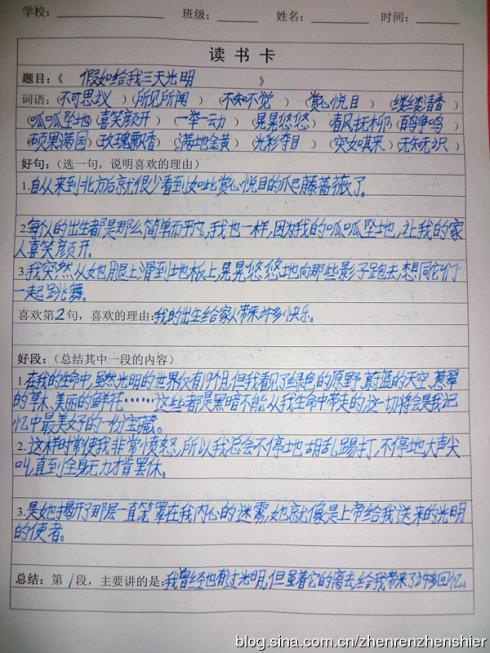 学校： 班级： 姓名： 时间：
读 书 卡
题目：《 假如给我三天光明 》
词语：（不可思议）（所见所闻）（不知不觉）（赏心悦目）（缕缕清香）
（呱呱坠地）（喜笑颜开）（一举一动）（晃晃悠悠）（春风抚柳）（百鸟争鸣）
（硕果满园）（玫瑰飘香）（满地金黄）（光彩夺目）（突如其来）（无知无识）
好句：（选一句，说明喜欢的理由）
1.自从来到北方后就很少看到如此赏心悦目的爬藤蔷薇了。
2.每个人的出生都是那么简单而平凡，我也一样，因为我的呱呱坠地，让我的家
人喜笑颜开。
3.我突然从她腿上滑到地板上，晃晃悠悠地向那些影子跑去想同它们
一起跳舞。
喜欢第2句，喜欢的理由：我的出生给家人带来许多快乐。
好段：（总结其中一段的内容）
1.在我的生命中，虽然光明的世界仅有19个月，但我看见了绿色的原野、蔚蓝的天空、葱翠
的草木、美丽的鲜花……这些都是黑暗不能从我生命中带走的，这一切将会是我记
忆中最美好的一份宝藏。
2.这样时常使我非常愤怒，所以我总会不停地胡乱踢打，不停地大声尖
叫，直到全身无力才肯罢休。
3.是她揭开了那层一直笼罩在我内心的迷雾，她就像是上帝给我送来的光明
的使者。
总结：第1段，主要讲的是：我曾经也有过光明，但显着它的离去，给我带来了许多回忆。
blog.sina.com.cn/zhenrenzhenshier